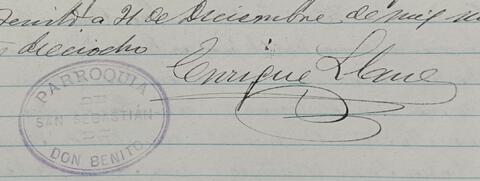 Benito a 21 de Diciembre de mil
dieciocho
Enrique
PARROQUIA
SAN SEBASTIÁN
DON BENITO